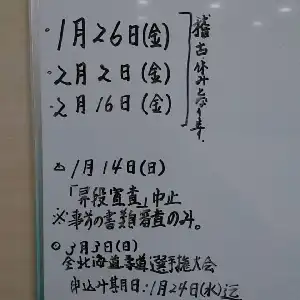 ・1月26日(金)
・2月2日(金)
・2月16日(金)
稽古休みとなります。
△1月14日(日)
「昇段審査」中止
※事前の書類審査のみ。
○3月3日(日)
全北海道 選手権大会
申込み期日:1月24日(水)迄